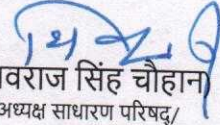 वराज सिंह चौहान)
अध्यक्ष साधारण परिषद/